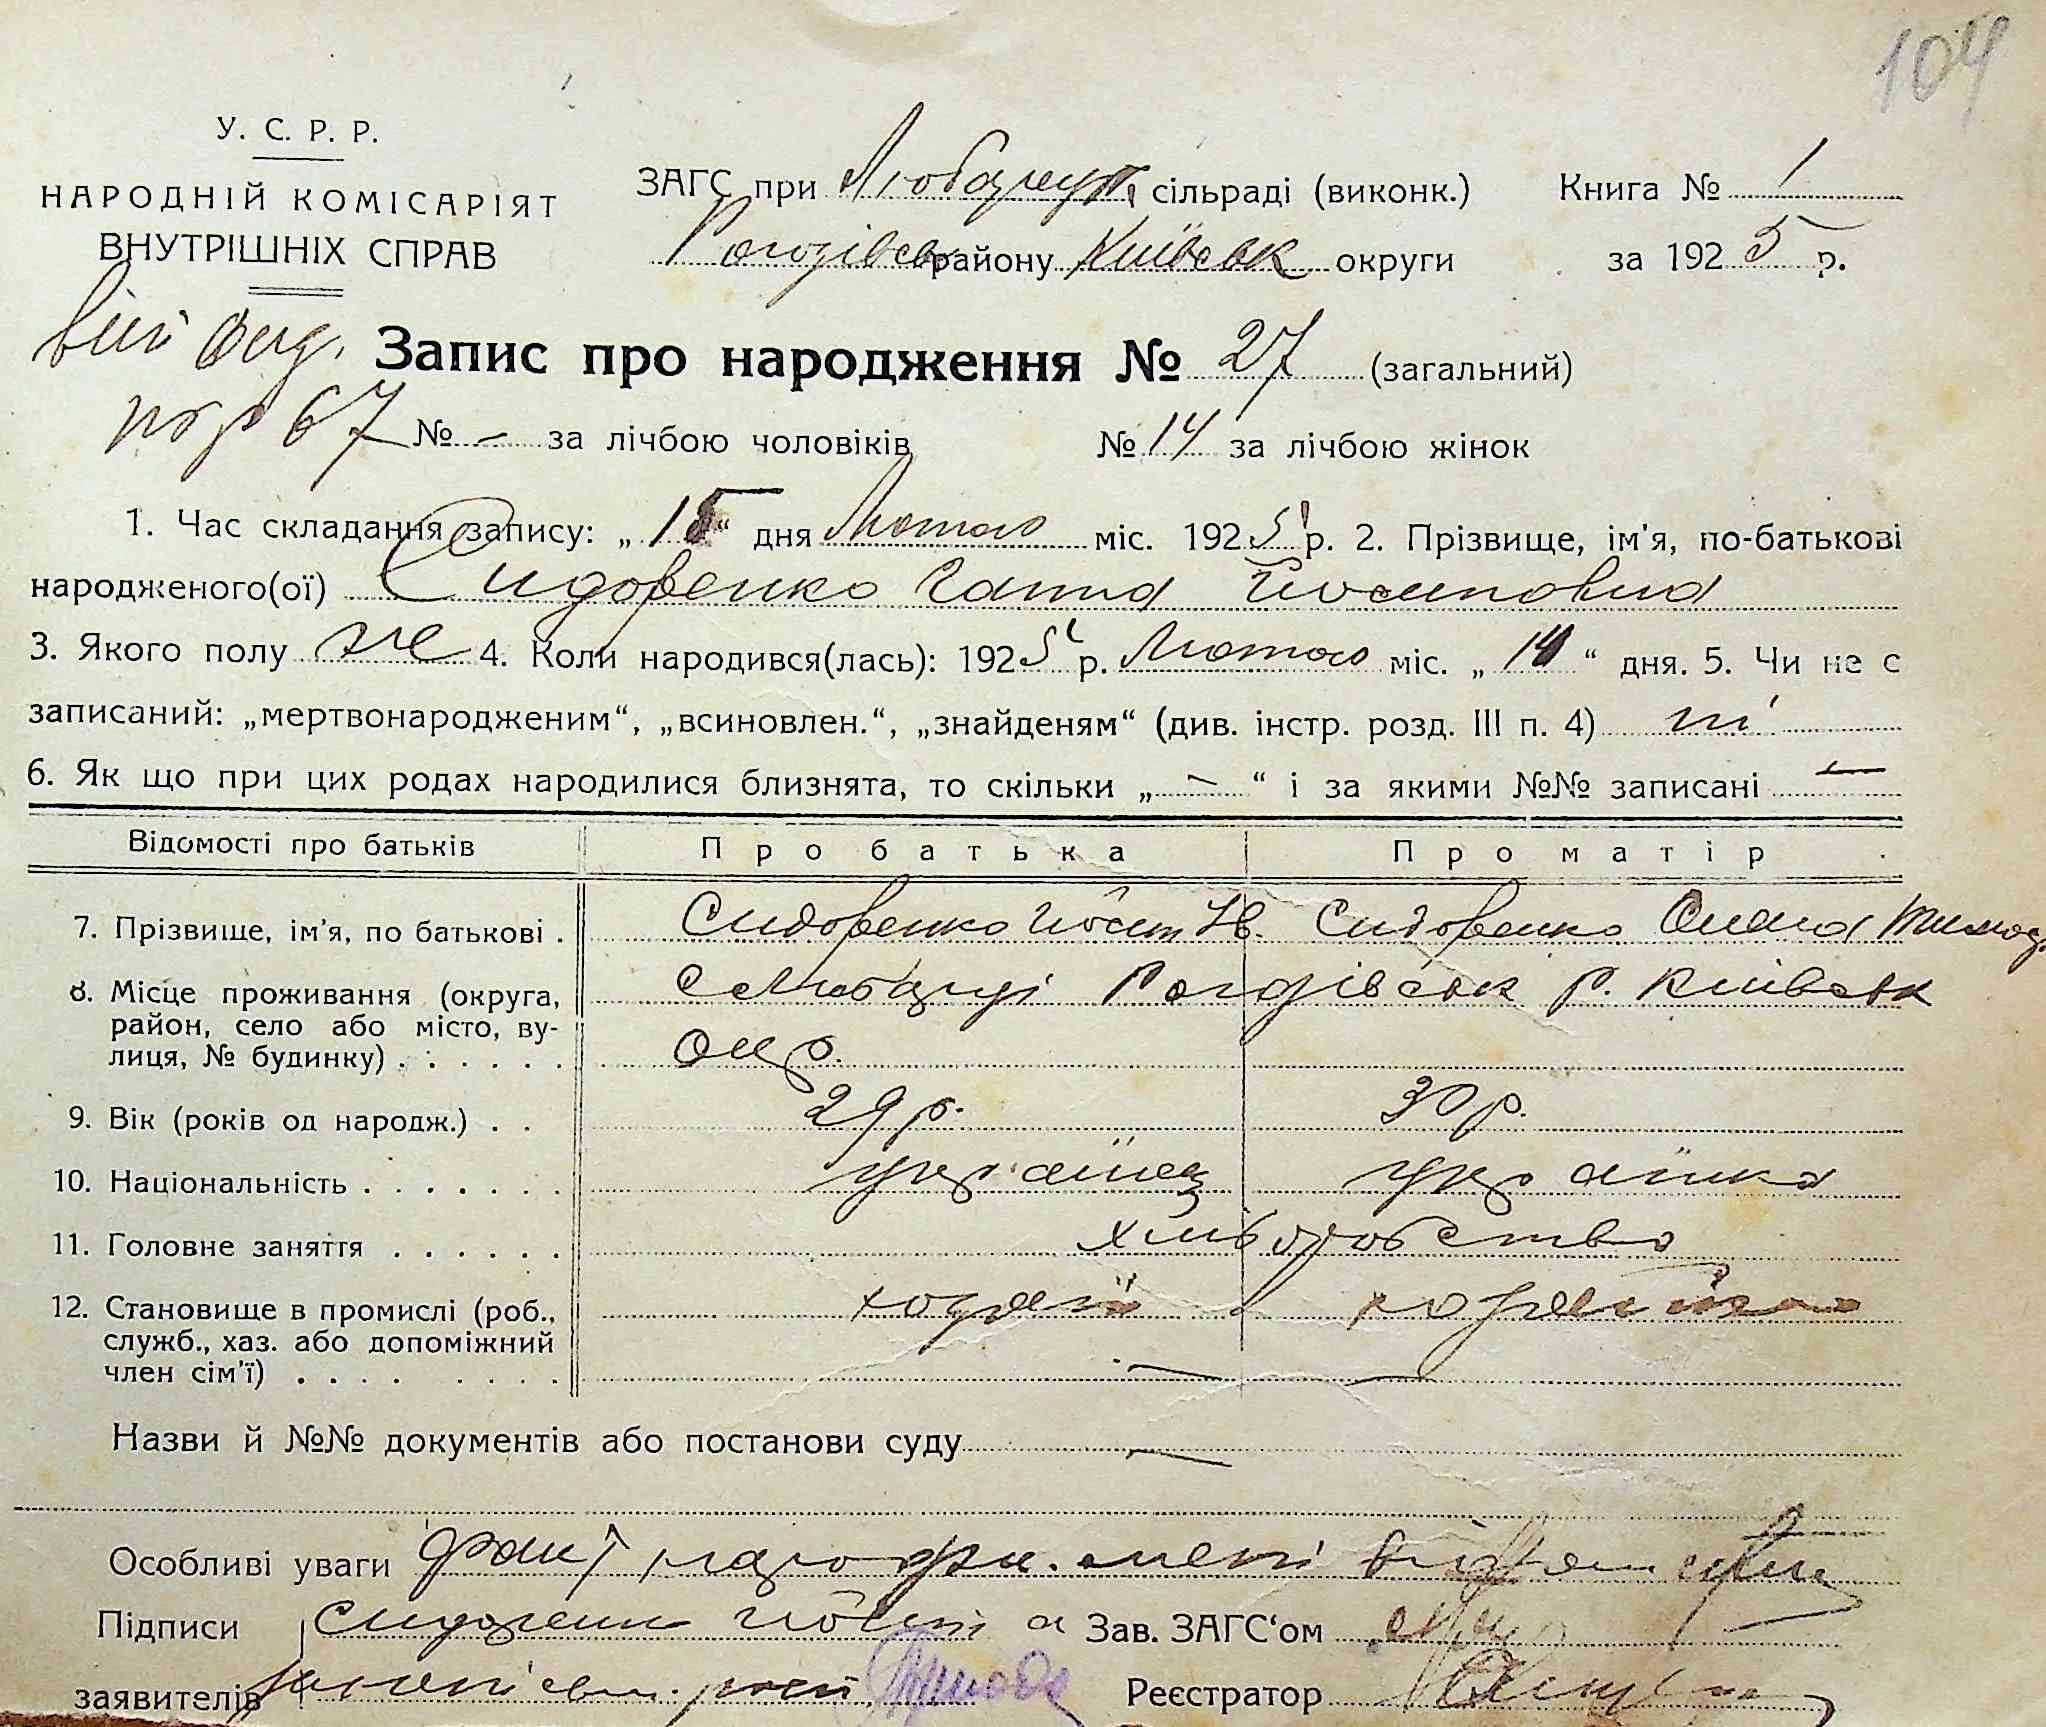 104
У. С. Р. Р.
НАРОДНІЙ КОМІСАРІЯТ
ВНУТРІШНІХ СПРАВ
ЗАГС при сільраді (виконк.) Книга № 1
Рогозівськ району Київськ округи за 1925 р.
Запис про народження № 27 (загальний)
67 № – за лічбою чоловіків № 14 за лічбою жінок
1. Час складання запису: „15“ дня Лютого міс. 1925 р. 2. Прізвище, ім'я, по-батькові
народженого(ої) Сидоренко Ганна Йосиповна
3. Якого полу же 4. Коли народився(лась): 1925 р. Лютого міс. „14“ дня. 5. Чи не є
записаний: „мертвонародженим“, „всиновлен.“, „знайденям“ (див. інстр. розд. III п. 4) ні
6. Як що при цих родах народилися близнята, то скільки „–“ і за якими №№ записані –
Відомості про батьків Про батька Про матір
7. Прізвище, ім'я, по батькові . Сидоренко Йосип Ів. Сидоренко Олена Тимоф.
8. Місце проживання (округа, с Любарці Рогозівськ р. Київськ
район, село або місто, ву- окр.
лиця, № будинку) . . . . . .
9. Вік (років од народж.) . . 29 р. 30 р.
10. Національність . . . . . . . українец українка
11. Головне заняття . . . . . . хліборобство
12. Становище в промислі (роб., хозяїн хозяйка
служб., хаз. або допоміжний
член сім'ї) . . . . . . . . – –
Назви й №№ документів або постанови суду –
Особливі уваги факт народж.
Підписи Сидоренко Йосип а Зав. ЗАГС'ом
заявителів Реєстратор